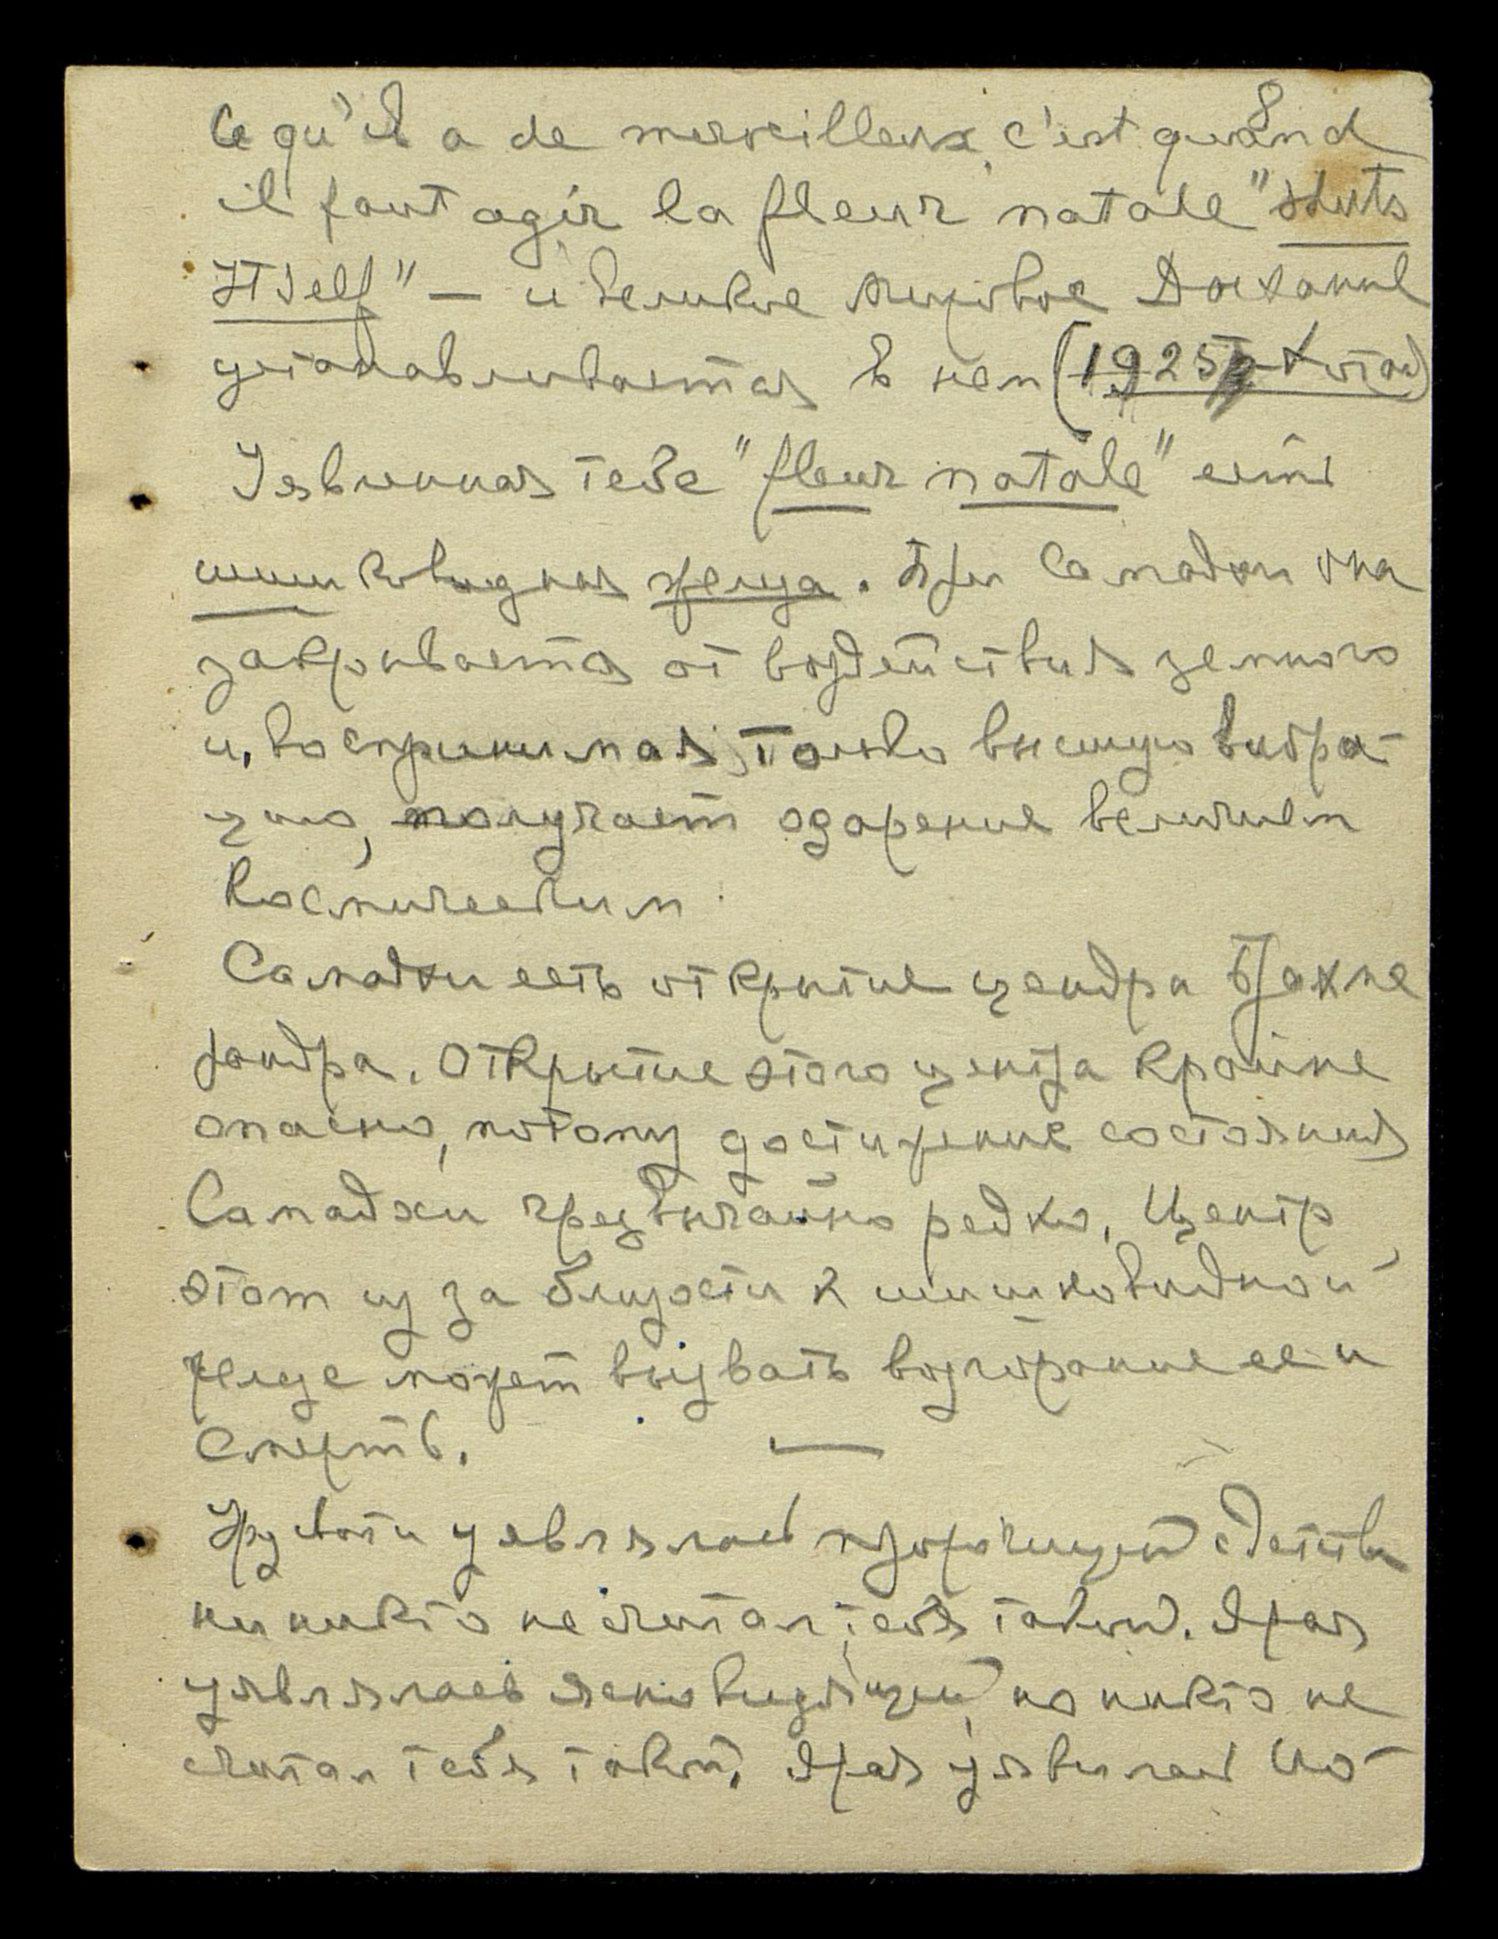 Ce qu'il a de merveilleux, c'est quand
il faut agir la fleur natale "shuts
Itself" — и великое мировое Дыхание
устанавливается в нем (1925 г.
Уявленная тебе "fleur natale" есть
шишковидная железа. При Самадхи она
закрывается от воздействия земного
и, воспринимая только высшую вибра-
цию, получает одарение величием
космическим.
Самадхи есть открытие цендра Брахме
рандра. Открытие этого центра крайне
опасно, потому достижение состояния
Самадхи чрезвычайно редко. Центр
этот из за близости к шишковидной
железе может вызвать возгорание ее и
смерть. —
Урусвати уявлялась пророчицей с детства
но никто не считал тебя такой. Ярая
уявлялась ясновидящей, но никто не
считал тебя такой. Ярая уявилась Ио-